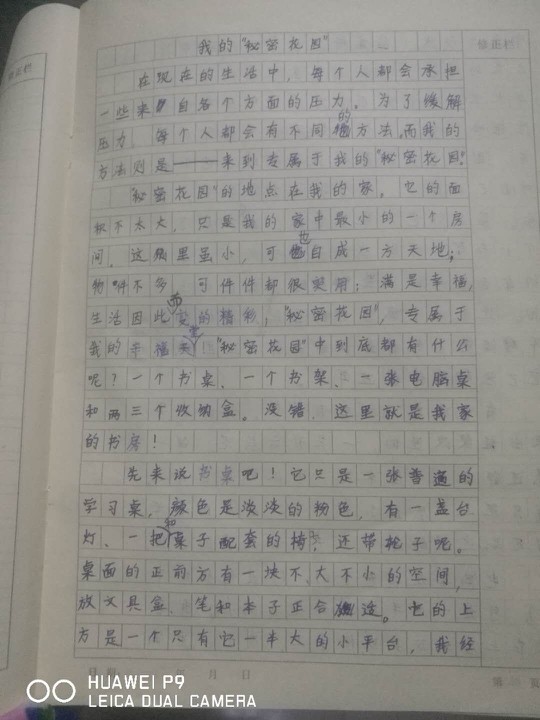 修正栏
修正栏
我的"秘密花园"
在现在的生活中，每个人都会承担
一些来自各个方面的压力。为了缓解
压力，每个人都会有不同的方法，而我的
方法则是——来到专属于我的"秘密花园"。
"秘密花园"的地点在我的家，它的面
积不太大，只是我的家中最小的一个房
间，这里虽小，可也自成一方天地；
物件不多，可件件都很实用；满是幸福，
生活因此而精彩，"秘密花园"，专属于
我的幸福"秘密花园"中到底都有什么
呢？一个书桌、一个书架、一张电脑桌
和两三个收纳盒。没错，这里就是我家
的书房！
先来说书桌吧！它只是一张普通的
学习桌，颜色是淡淡的粉色，有一盏台
灯、一把和桌子配套的椅，还带轮子呢。
桌面的正前方有一块不大不小的空间，
放文具盒、笔和本子正合适。它的上
方是一个只有它一半大的小平台，我经
日期 年 月 日
第 页
HUAWEI P9
LEICA DUAL CAMERA